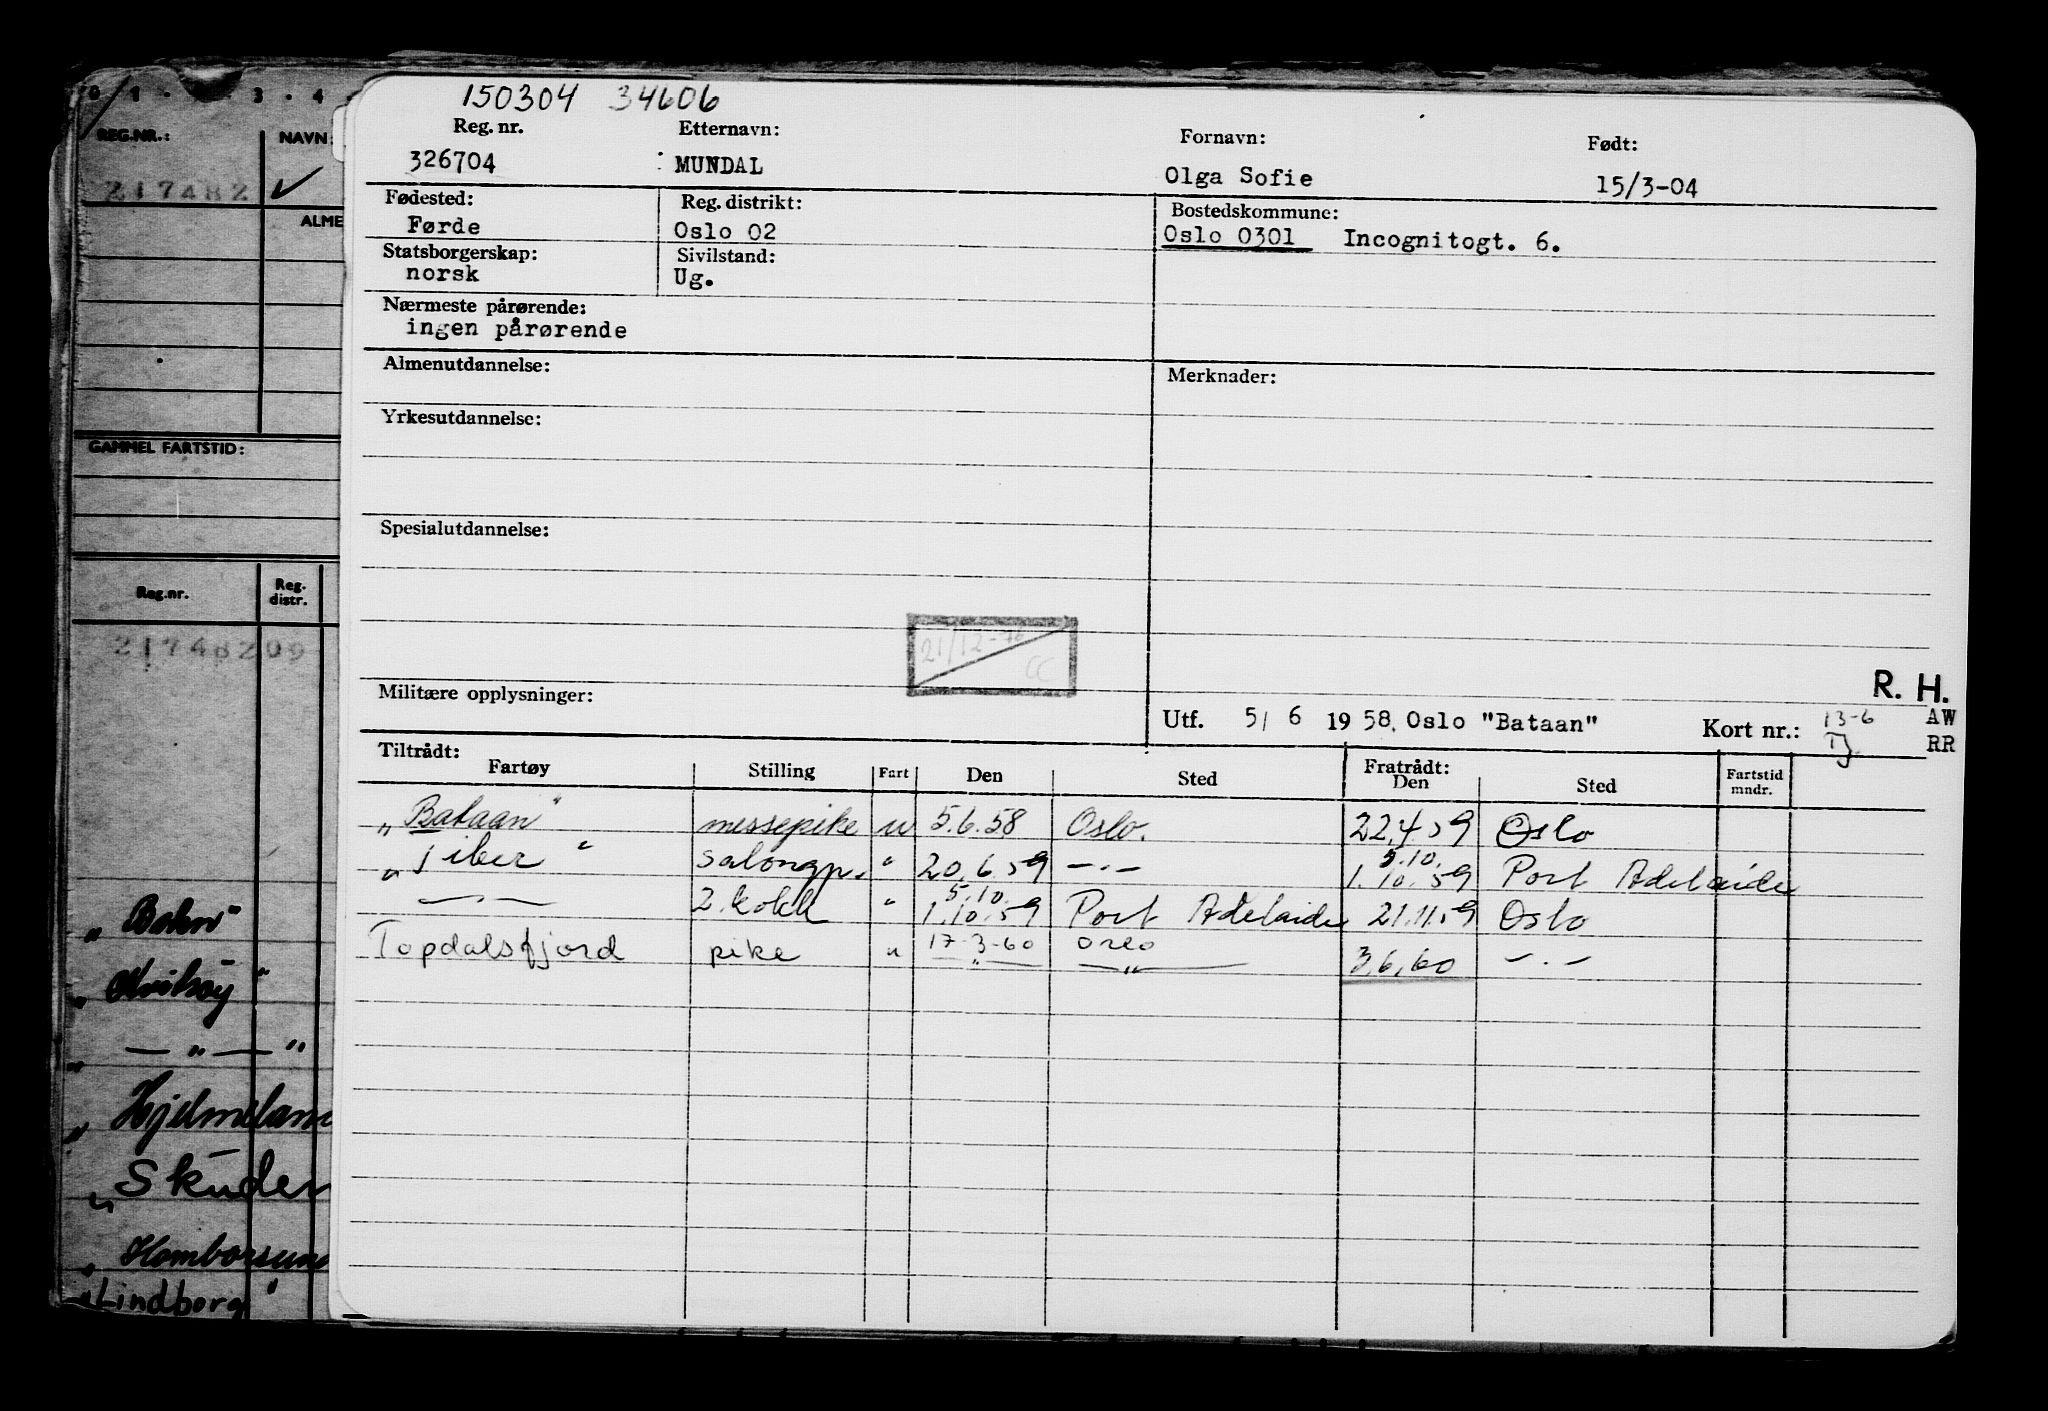 0 1 . . 3 . 4
REG.NR.: NAVN:
217482 ✓
ALME
GAMMEL FARTSTID:
Reg.nr. Reg. distr.
21748209
„ Bohn"
„ Kvitsøy "
„ — „ — "
„ Hjelmeland
„ Skuder
„ Homborsund
"Lindborg"
150304 34606
Reg. nr. Etternavn: Fornavn: Født:
326704 MUNDAL Olga Sofie 15/3-04
Fødested: Reg. distrikt: Bostedskommune:
Førde Oslo 02 Oslo 0301 Incognitogt. 6.
Statsborgerskap: Sivilstand:
norsk Ug.
Nærmeste pårørende:
ingen pårørende
Almenutdannelse: Merknader:
Yrkesutdannelse:
Spesialutdannelse:
21/12-76
CC
Militære opplysninger: R. H.
Utf. 5/ 6 19 58, Oslo "Bataan" Kort nr.: 13-6 AW
RR
Tiltrådt: Fratrådt:
Fartøy Stilling Fart Den Sted Den Sted Fartstid mndr.
„ Bataan" messepike u 5.6.58 Oslo. 22.4.59 Oslo
„ Tiber " salongp. " 20.6.59 —.— 5.10. 1.10.59 Port Adelaide
—"— 2. kokk " 5.10. 1.10.59 Port Adelaide 21.11.59 Oslo
Topdalsfjord pike u 17-3-60 Oslo 3.6.60 —.—
—"— —"—